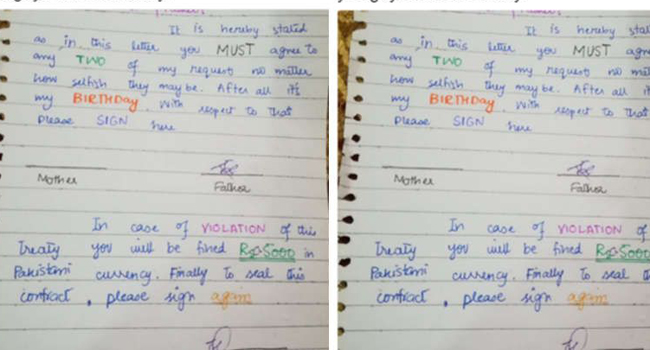 It is hereby stated
as in this letter you MUST agree to
any TWO of my request no matter
how selfish they may be. After all it's
my BIRTHDay. With respect to that
please SIGN here
Mother
Father
In case of VIOLATION of this
Treaty you will be fined Rs 5000 in
Pakistani currency. Finally to seal this
contract, please sign again
It is hereby stat
as in this letter you MUST agre
any TWO of my request no mat
how selfish they may be. After all it
my BIRTHDay. With respect to tha
please SIGN here
Mother
Father
In case of VIOLATION of
Treaty you will be fined Rs 5000
Pakistani currency. Finally to seal
contract, please sign again